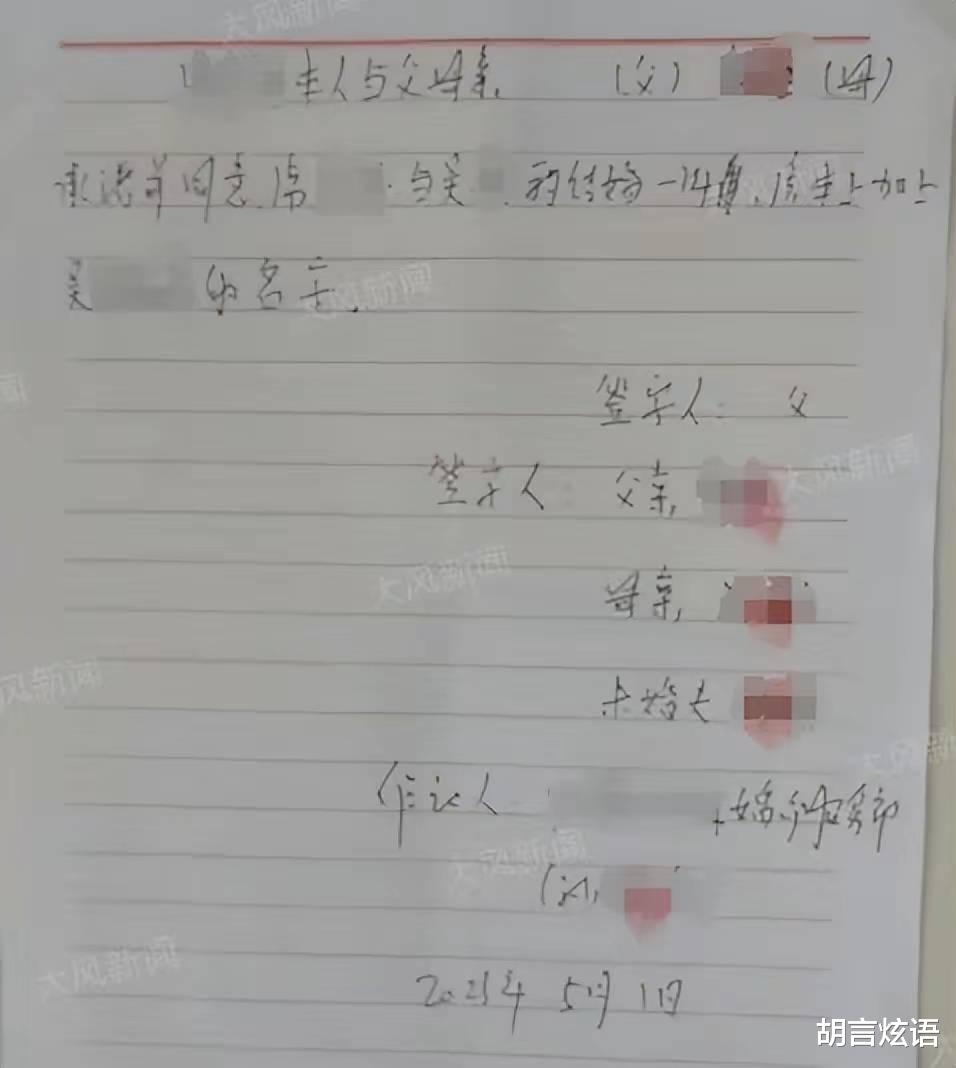 本人与父母亲 (父) (母)
承诺并同意 席 与吴 的结婚一年后 房产上加上
吴 的名字.
签字人: 父
签字人: 父亲,
母亲,
未婚夫
作证人 婚介服务部
(
2023年 5月 1日
大风新闻
大风新闻
大风新闻
大风新闻
风新闻
大风新闻
大风新闻
大风新闻
胡言炫语